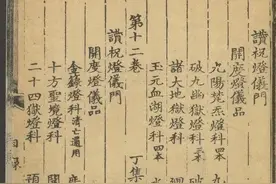 讚祝燈儀門
開度燈儀品
九陽梵炁燈科四本
破九幽獄燈科
諸大地獄燈科四本
玉元血湖燈科四本
第十二卷 丁集
讚祝燈儀門
開度燈儀品
金籙燈科清亡通用
十方聖境燈科
二十四獄燈科
目錄